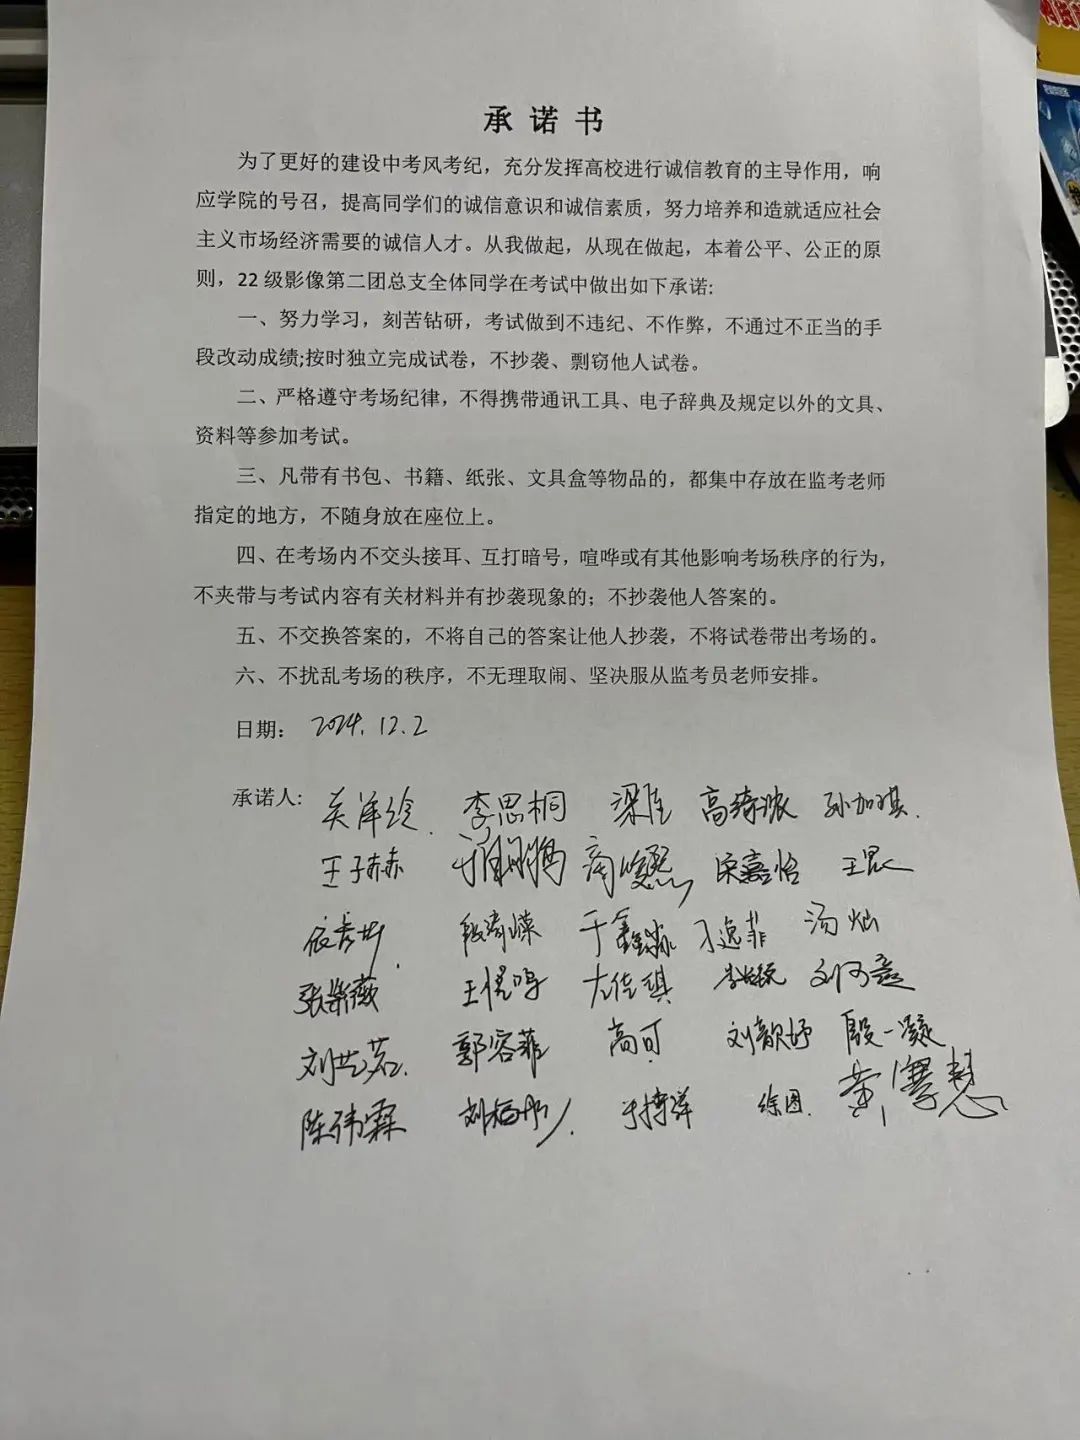 承诺书
为了更好的建设中考风考纪，充分发挥高校进行诚信教育的主导作用，响
应学院的号召，提高同学们的诚信意识和诚信素质，努力培养和造就适应社会
主义市场经济需要的诚信人才。从我做起，从现在做起，本着公平、公正的原
则，22 级影像第二团总支全体同学在考试中做出如下承诺:
一、努力学习，刻苦钻研，考试做到不违纪、不作弊，不通过不正当的手
段改动成绩;按时独立完成试卷，不抄袭、剽窃他人试卷。
二、严格遵守考场纪律，不得携带通讯工具、电子辞典及规定以外的文具、
资料等参加考试。
三、凡带有书包、书籍、纸张、文具盒等物品的，都集中存放在监考老师
指定的地方，不随身放在座位上。
四、在考场内不交头接耳、互打暗号，喧哗或有其他影响考场秩序的行为，
不夹带与考试内容有关材料并有抄袭现象的；不抄袭他人答案的。
五、不交换答案的，不将自己的答案让他人抄袭，不将试卷带出考场的。
六、不扰乱考场的秩序，不无理取闹、坚决服从监考员老师安排。
日期： 2024.12.2
承诺人: 李思桐 孙加琪.
王子赫 宋嘉怡
汤灿
张紫薇 左佳琪
刘芸若. 郭容菲 高可 刘歆妤 殷一凝
陈伟霖